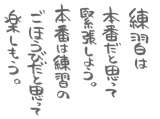 練習は
本番だと思って
緊張しよう。
本番は練習の
ごほうびだと思って
楽しもう。